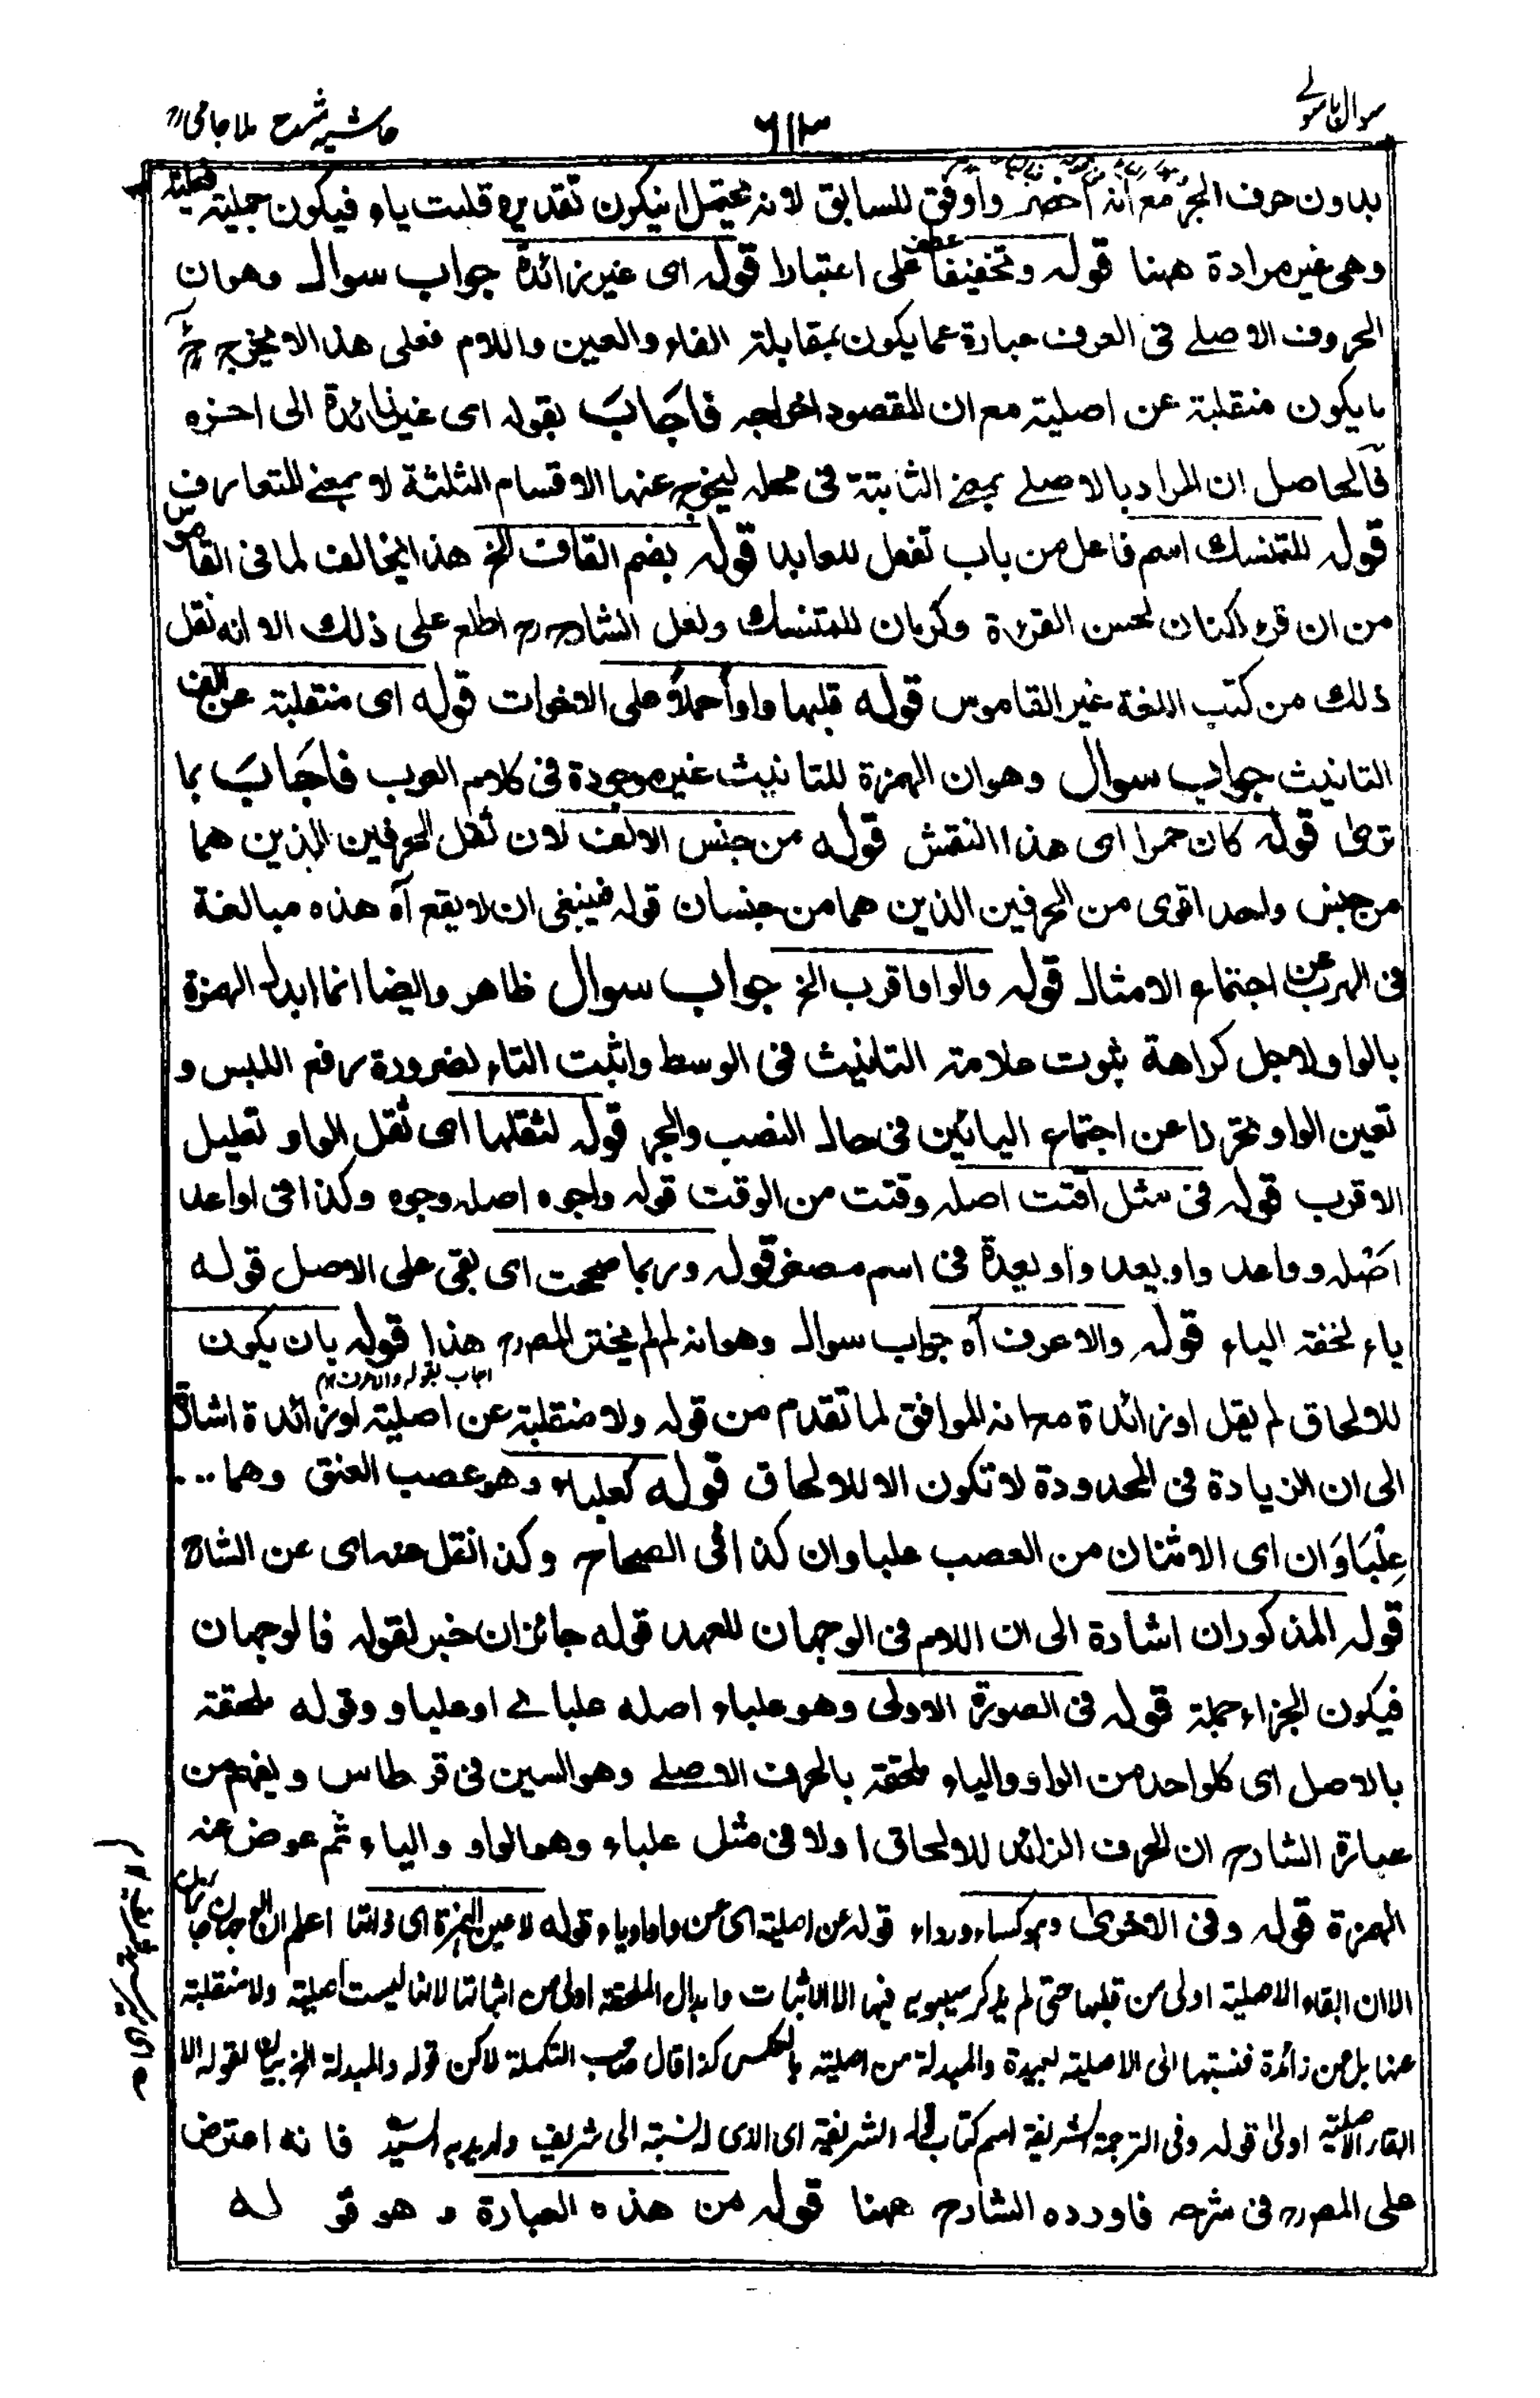 سوال باسولے ٦١٣ حاشیہ شرح ملا جامی
بدون حرف الجر مع انه اخضر واوفق للسابق لانه يحتمل ان يكون تقديره قلبت ياء فيكون جملية فعلية
وهى غير مرادة ههنا قوله وتخفيفا عطف على اعتبارا قوله اى غير زائدة جواب سوال وهو ان
الحروف الاصلے فى العرف عبارة عما يكون بمقابلة الفاء والعين واللام فعلى هذا لا يخرج
ما يكون منقلبة عن اصلية مع ان المقصود اخراجه فاجاب بقوله اى غير زائدة الى اخره
فالحاصل ان المراد بالاصلے بمعنے الثابتة فى محله ليخرج عنها الاقسام الثلثة لا بمعنے المتعارف
قوله للمتنسك اسم فاعل من باب تفعل للعابد قوله بضم القاف الخ هذا يخالف لما فى القاموس
من ان قراء ككتان لحسن القرءة وكرمان للمتنسك ولعل الشارح رح اطلع على ذلك الا انه نقل
ذلك من كتب اللغة غير القاموس قوله قلبها واوا حملا على الاخوات قوله اى منقلبة عن الف
التانيث جواب سوال وهو ان الهمزة للتانيث غير موجودة فى كلام العرب فاجاب بما
ترى قوله كان حمرا اى هذا النقش قوله من جنس الالف لان ثقل الحرفين الذين هما
من جنس واحد اقوى من الحرفين الذين هما من جنسان قوله فينبغى ان لا يقع آه هذه مبالغة
فى الهرب عن اجتماع الامثال قوله والواو اقرب الخ جواب سوال ظاهر وايضا انما ابدل الهمزة
بالواو لاجل كراهة ثبوت علامة التانيث فى الوسط واثبت التاء لضرورة رفع اللبس و
تعين الواو تحرزا عن اجتماع اليائين فى حال النصب والجر قوله لثقلها اى ثقل الواو تعليل
الاقرب قوله فى مثل اقتت اصله وقتت من الوقت قوله واجوه اصله وجوه وكذا فى اواعد
اصله وواعد واويعد واويعدة فى اسم مصغر قوله وربما صححت اى بقى على الاصل قوله
ياء لخفة الياء قوله والاعرف آه جواب سوال وهو انه لم لم يختر المصرح هذا قوله بان يكون
اجاب بقوله والاعرف ١٢م
للالحاق لم يقل او زائدة مع انه الموافق لما تقدم من قوله ولا منقلبة عن اصلية او زائدة اشارة
الى ان الزيادة فى المحدودة لا تكون الا للالحاق قوله كعلباء وهو عصب العنق وهما ..
عِلْبَاوَان اى الاثنان من العصب علباوان كذا فى الصحاح وكذا نقل عنه اى عن الشارح
قوله المذكوران اشارة الى ان اللام فى الوجهان للعهد قوله جائزان خبر لقوله فالوجهان
فيكون الجزاء جملة قوله فى الصورة الاولى وهو علباء اصله علباے او علباو وقوله ملحقة
بالاصل اى كلواحد من الواو والياء ملحقة بالحرف الاصلے وهو السين فى قرطاس ويفهم من
عبارة الشارح ان الحرف الزائد للالحاق اولا فى مثل علباء وهو الواو والياء ثم عوض عنه
الهمزة قوله وفى الاخرى وهو كساء ورداء قوله عن اصلية اى عن واو او ياء وقوله لا عين الهمزة اى ذاتها اعلم ان الوجهان جائزان
الا ان ابقاء الاصلية اولى من قلبها حتى لم يذكر سيبويه فيها الا الاثبات وابدال الملحقة اولى من اثباتها لانها ليست اصلية ولا منقلبة
عنها بل عن زائدة فنسبتها الى الاصلية بعيدة والمبدلة من اصلية بالعكس كذا قال صاحب التكملة لاكن قوله والمبدلة الخ بيان لقوله الا
ابقاء الاصلية اولى قوله وفى الترجمة الشريفة اسم كتاب الشريفة اى الذى له نسبة الى شريف واريد به السيد فانه اعترض
على المصرح فى شرحه فاورده الشارح ههنا قوله من هذه العبارة وهو قوله